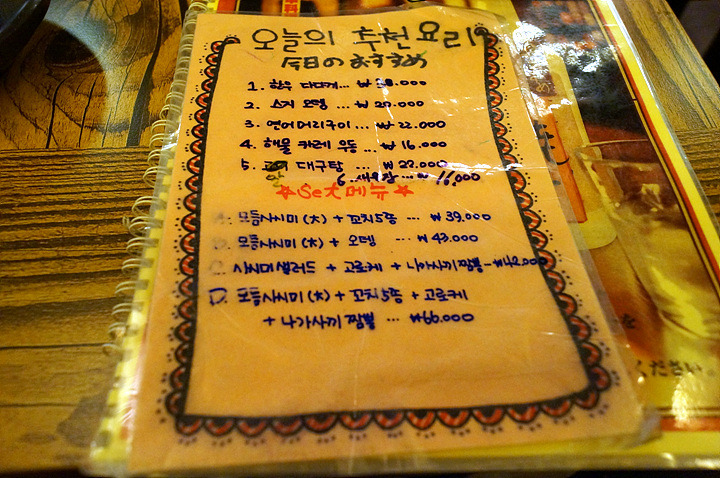 오늘의 추천 요리
今日のおすすめ
1. 한우 다다끼 ... ₩28.000
2. 소거 오뎅 ... ₩20.000
3. 연어머리구이 ... ₩22.000
4. 해물 카레 우동 ... ₩16.000
5. 대구탕 ... ₩27.000
6. ... ₩16,000
★Set메뉴★
모듬사시미(大) + 꼬치5종 ... ₩39.000
모듬사시미(大) + 오뎅 ... ₩43.000
C. 사시미샐러드 + 고로케 + 나가사끼짬뽕 - ₩42.000
D. 모듬사시미(大) + 꼬치5종 + 고로케
+ 나가사끼짬뽕 ... ₩66.000
ください